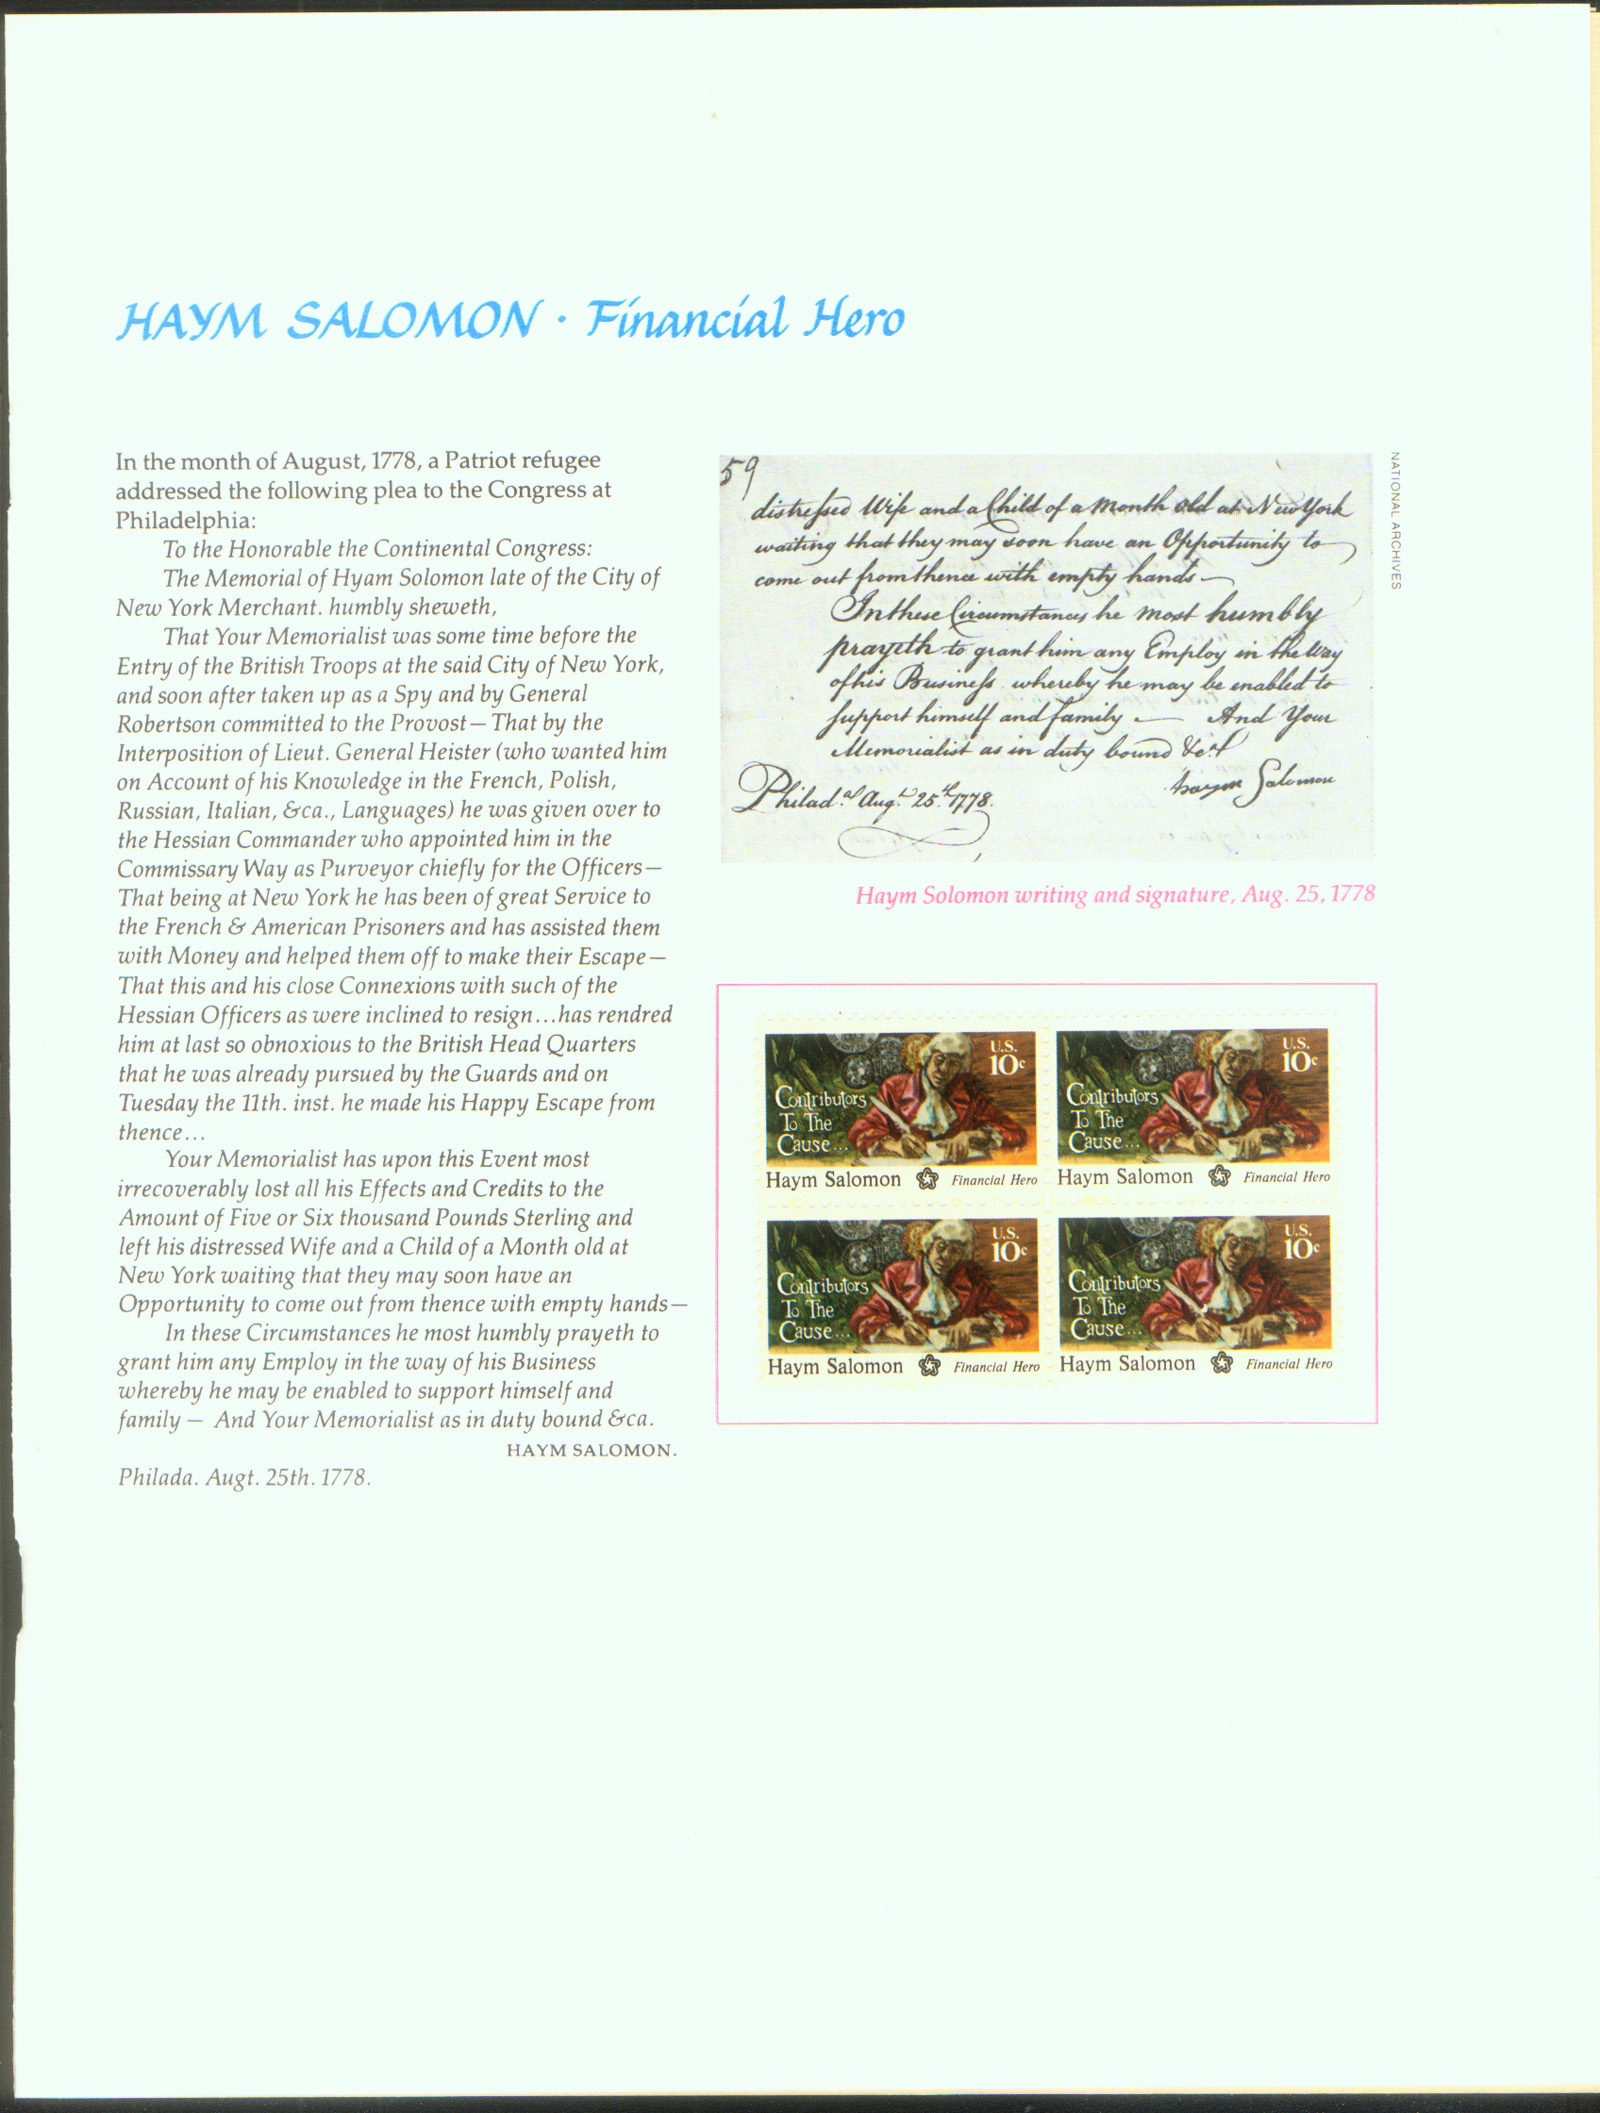 HAYM SALOMON · Financial Hero
In the month of August, 1778, a Patriot refugee
addressed the following plea to the Congress at
Philadelphia:
To the Honorable the Continental Congress:
The Memorial of Hyam Solomon late of the City of
New York Merchant. humbly sheweth,
That Your Memorialist was some time before the
Entry of the British Troops at the said City of New York,
and soon after taken up as a Spy and by General
Robertson committed to the Provost—That by the
Interposition of Lieut. General Heister (who wanted him
on Account of his Knowledge in the French, Polish,
Russian, Italian, &ca., Languages) he was given over to
the Hessian Commander who appointed him in the
Commissary Way as Purveyor chiefly for the Officers—
That being at New York he has been of great Service to
the French & American Prisoners and has assisted them
with Money and helped them off to make their Escape—
That this and his close Connexions with such of the
Hessian Officers as were inclined to resign...has rendred
him at last so obnoxious to the British Head Quarters
that he was already pursued by the Guards and on
Tuesday the 11th. inst. he made his Happy Escape from
thence...
Your Memorialist has upon this Event most
irrecoverably lost all his Effects and Credits to the
Amount of Five or Six thousand Pounds Sterling and
left his distressed Wife and a Child of a Month old at
New York waiting that they may soon have an
Opportunity to come out from thence with empty hands—
In these Circumstances he most humbly prayeth to
grant him any Employ in the way of his Business
whereby he may be enabled to support himself and
family — And Your Memorialist as in duty bound &ca.
HAYM SALOMON.
Philada. Augt. 25th. 1778.
59
distreſsed Wife and a Child of a Month old at New York
waiting that they may soon have an Opportunity to
come out from thence with empty hands—
In these Circumstances he most humbly
prayeth to grant him any Employ in the Way
of his Busineſs whereby he may be enabled to
support himself and family — And Your
Memorialist as in duty bound &ca
Haym Salomon
Philad.a Aug.t 25.th 1778.
NATIONAL ARCHIVES
Haym Solomon writing and signature, Aug. 25, 1778
U.S.
10c
Contributors
To The
Cause...
Haym Salomon Financial Hero
U.S.
10c
Contributors
To The
Cause...
Haym Salomon Financial Hero
U.S.
10c
Contributors
To The
Cause...
Haym Salomon Financial Hero
U.S.
10c
Contributors
To The
Cause...
Haym Salomon Financial Hero